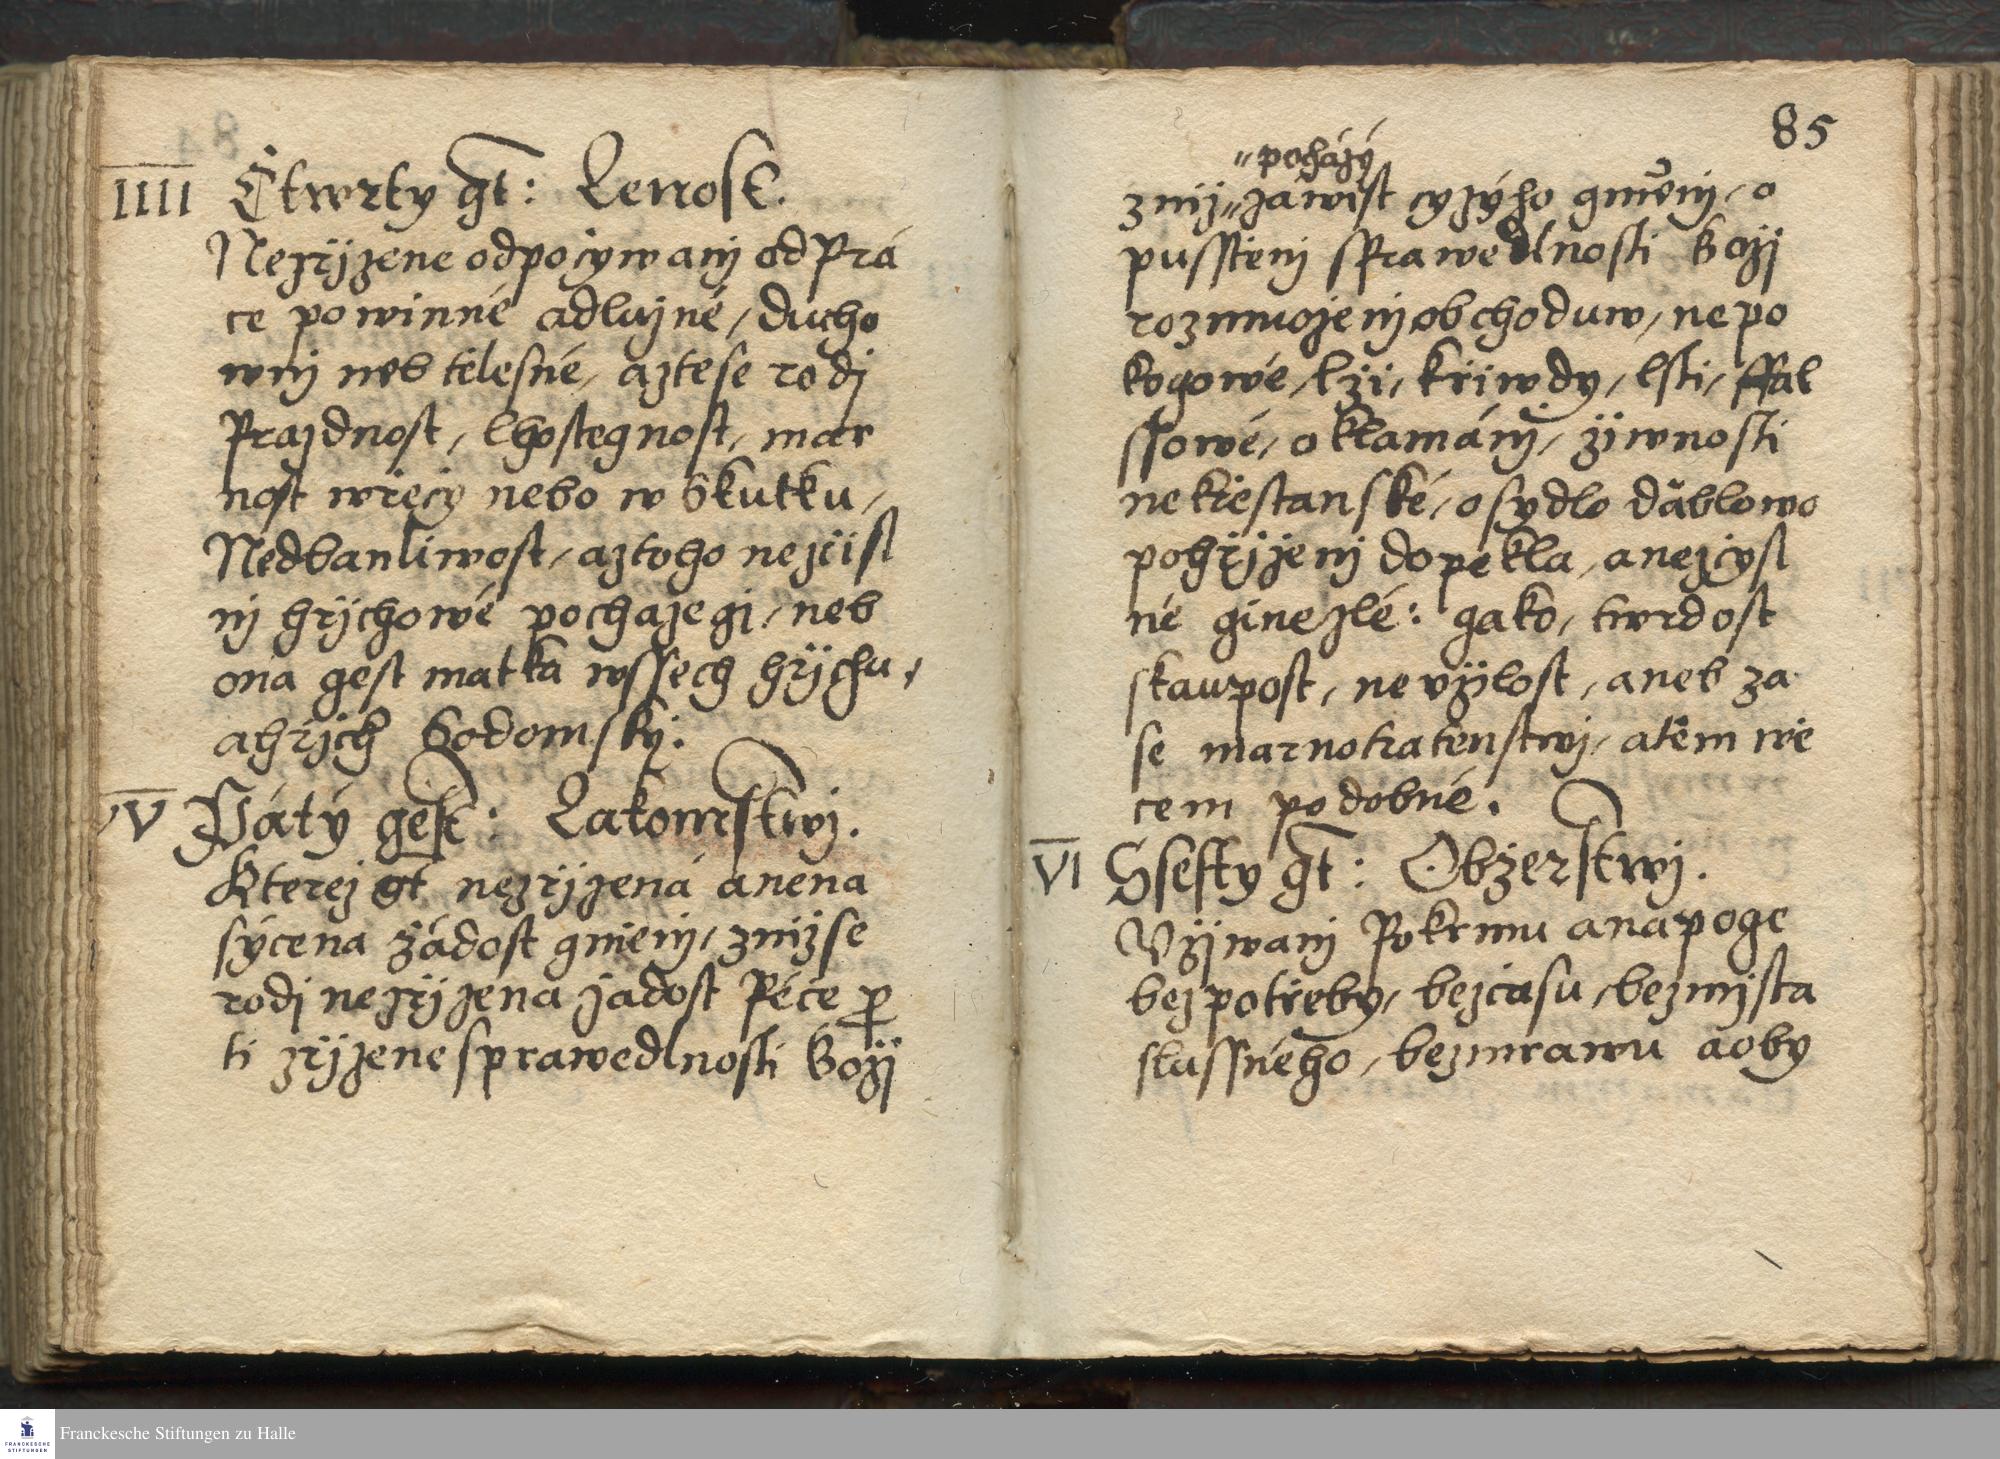 IIII Čtwrty gt: Lenost.
Nezrÿzene odpočywanj od Prá
ce powinné a dlužné, ducho
wnj neb tělesné, a z te se rodj
Prazdnost, lhostegnost, mar
nost w řeči nebo w Skutku,
Nedbanliwost, a z toho nezčisl
nj hrÿchowé pochazegj, neb
ona gest matka wssech hrÿchu,
a hrjch Sodomský.
V Pátý gest: Lakomstwj.
Kterej gt nezrÿzená a nena
sýcena žádost gměnj, z nijž se
rodj nezrÿzena zadost Péče pro
ti zrÿzene sprawedlnosti Božj
85
„pocházý
z nijž „záwist cyzýho gměnj, o
pusstěnj sprawedlnosti Božj
rozmnoženj obchoduw, nepo
kogowé, lži, křiwdy, lsti, ffal
ssowé, oklamánj, žiwnosti
nekřestanské, osydlo däblowo
pohřjženj do pekla, a nezčysl
né giné zlé: gako, twrdost
skaupost, neužilost, aneb za
se marnotratenstwj, a těm wě
cem podobné.
VI Ssesty gt: Obžerstwj.
Vžjwanj Pokrmu a napoge
bez potřeby, bez času, bez mjsta
slussného, bez mrawu a oby
FRANCKESCHE STIFTUNGEN
Franckesche Stiftungen zu Halle